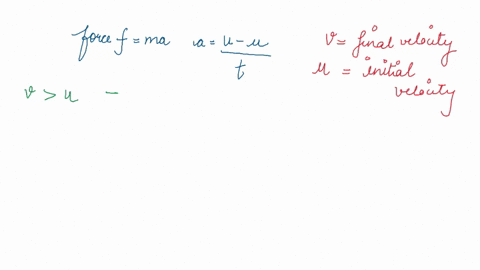 force f = ma a = u - u / t
v = final velocity
u = initial velocity
v > u -